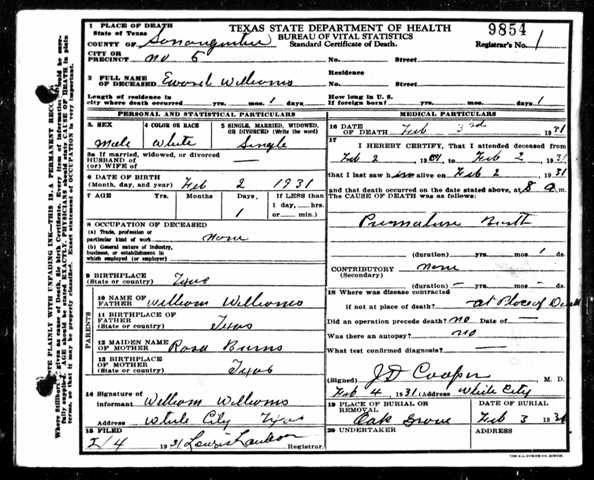 1 PLACE OF DEATH
State of Texas
TEXAS STATE DEPARTMENT OF HEALTH
BUREAU OF VITAL STATISTICS
Standard Certificate of Death.
9854
Registrar's No. 1
COUNTY OF San Augustine
CITY OR PRECINCT No 5 No. Street
2 FULL NAME OF DECEASED Williams
Residence
No. Street
Length of residence in city where death occurred yrs. mos. 1 days.
How long in U. S. if foreign born? yrs. mos. days 1
PERSONAL AND STATISTICAL PARTICULARS
3. SEX
Male
4 COLOR OR RACE
White
5 SINGLE, MARRIED, WIDOWED, OR DIVORCED (Write the word)
Single
5a If married, widowed, or divorced
HUSBAND of
(or) WIFE of
6 DATE OF BIRTH
(Month, day, and year) Feb 2 1931
7 AGE Yrs. Months Days If LESS than
1 1 day, hrs.
or min.)
8 OCCUPATION OF DECEASED
(a) Trade, profession or particular kind of work none
(b) General nature of Industry, business, or establishment in which employed (or employer)
9 BIRTHPLACE
(State or country) Texas
PARENTS
10 NAME OF FATHER William Williams
11 BIRTHPLACE OF FATHER
(State or country) Texas
12 MAIDEN NAME OF MOTHER Rosa Burns
13 BIRTHPLACE OF MOTHER
(State or country) Texas
14 Signature of informant William Williams
Address White City Texas
15 FILED
2/4 1931
Registrar.
MEDICAL PARTICULARS
16 DATE OF DEATH Feb 3rd 1931
17
I HEREBY CERTIFY, That I attended deceased from
Feb 2 1931, to Feb 2 1931
that I last saw him alive on Feb 2 1931
and that death occurred on the date stated above, at 8 a.m.
The CAUSE OF DEATH was as follows:
Premature Birth
(duration) yrs. mos. 1 ds.
CONTRIBUTORY none
(Secondary)
(duration) — yrs. — mos. — ds.
18 Where was disease contracted
if not at place of death? at Place of Death
Did an operation precede death? no Date of —
Was there an autopsy? no
What test confirmed diagnosis? —
(Signed) J D Cooper M. D.
Feb 4 1931 (Address) White City
19 PLACE OF BURIAL OR REMOVAL
Oak Grove
DATE OF BURIAL
Feb 3 1931
20 UNDERTAKER
ADDRESS